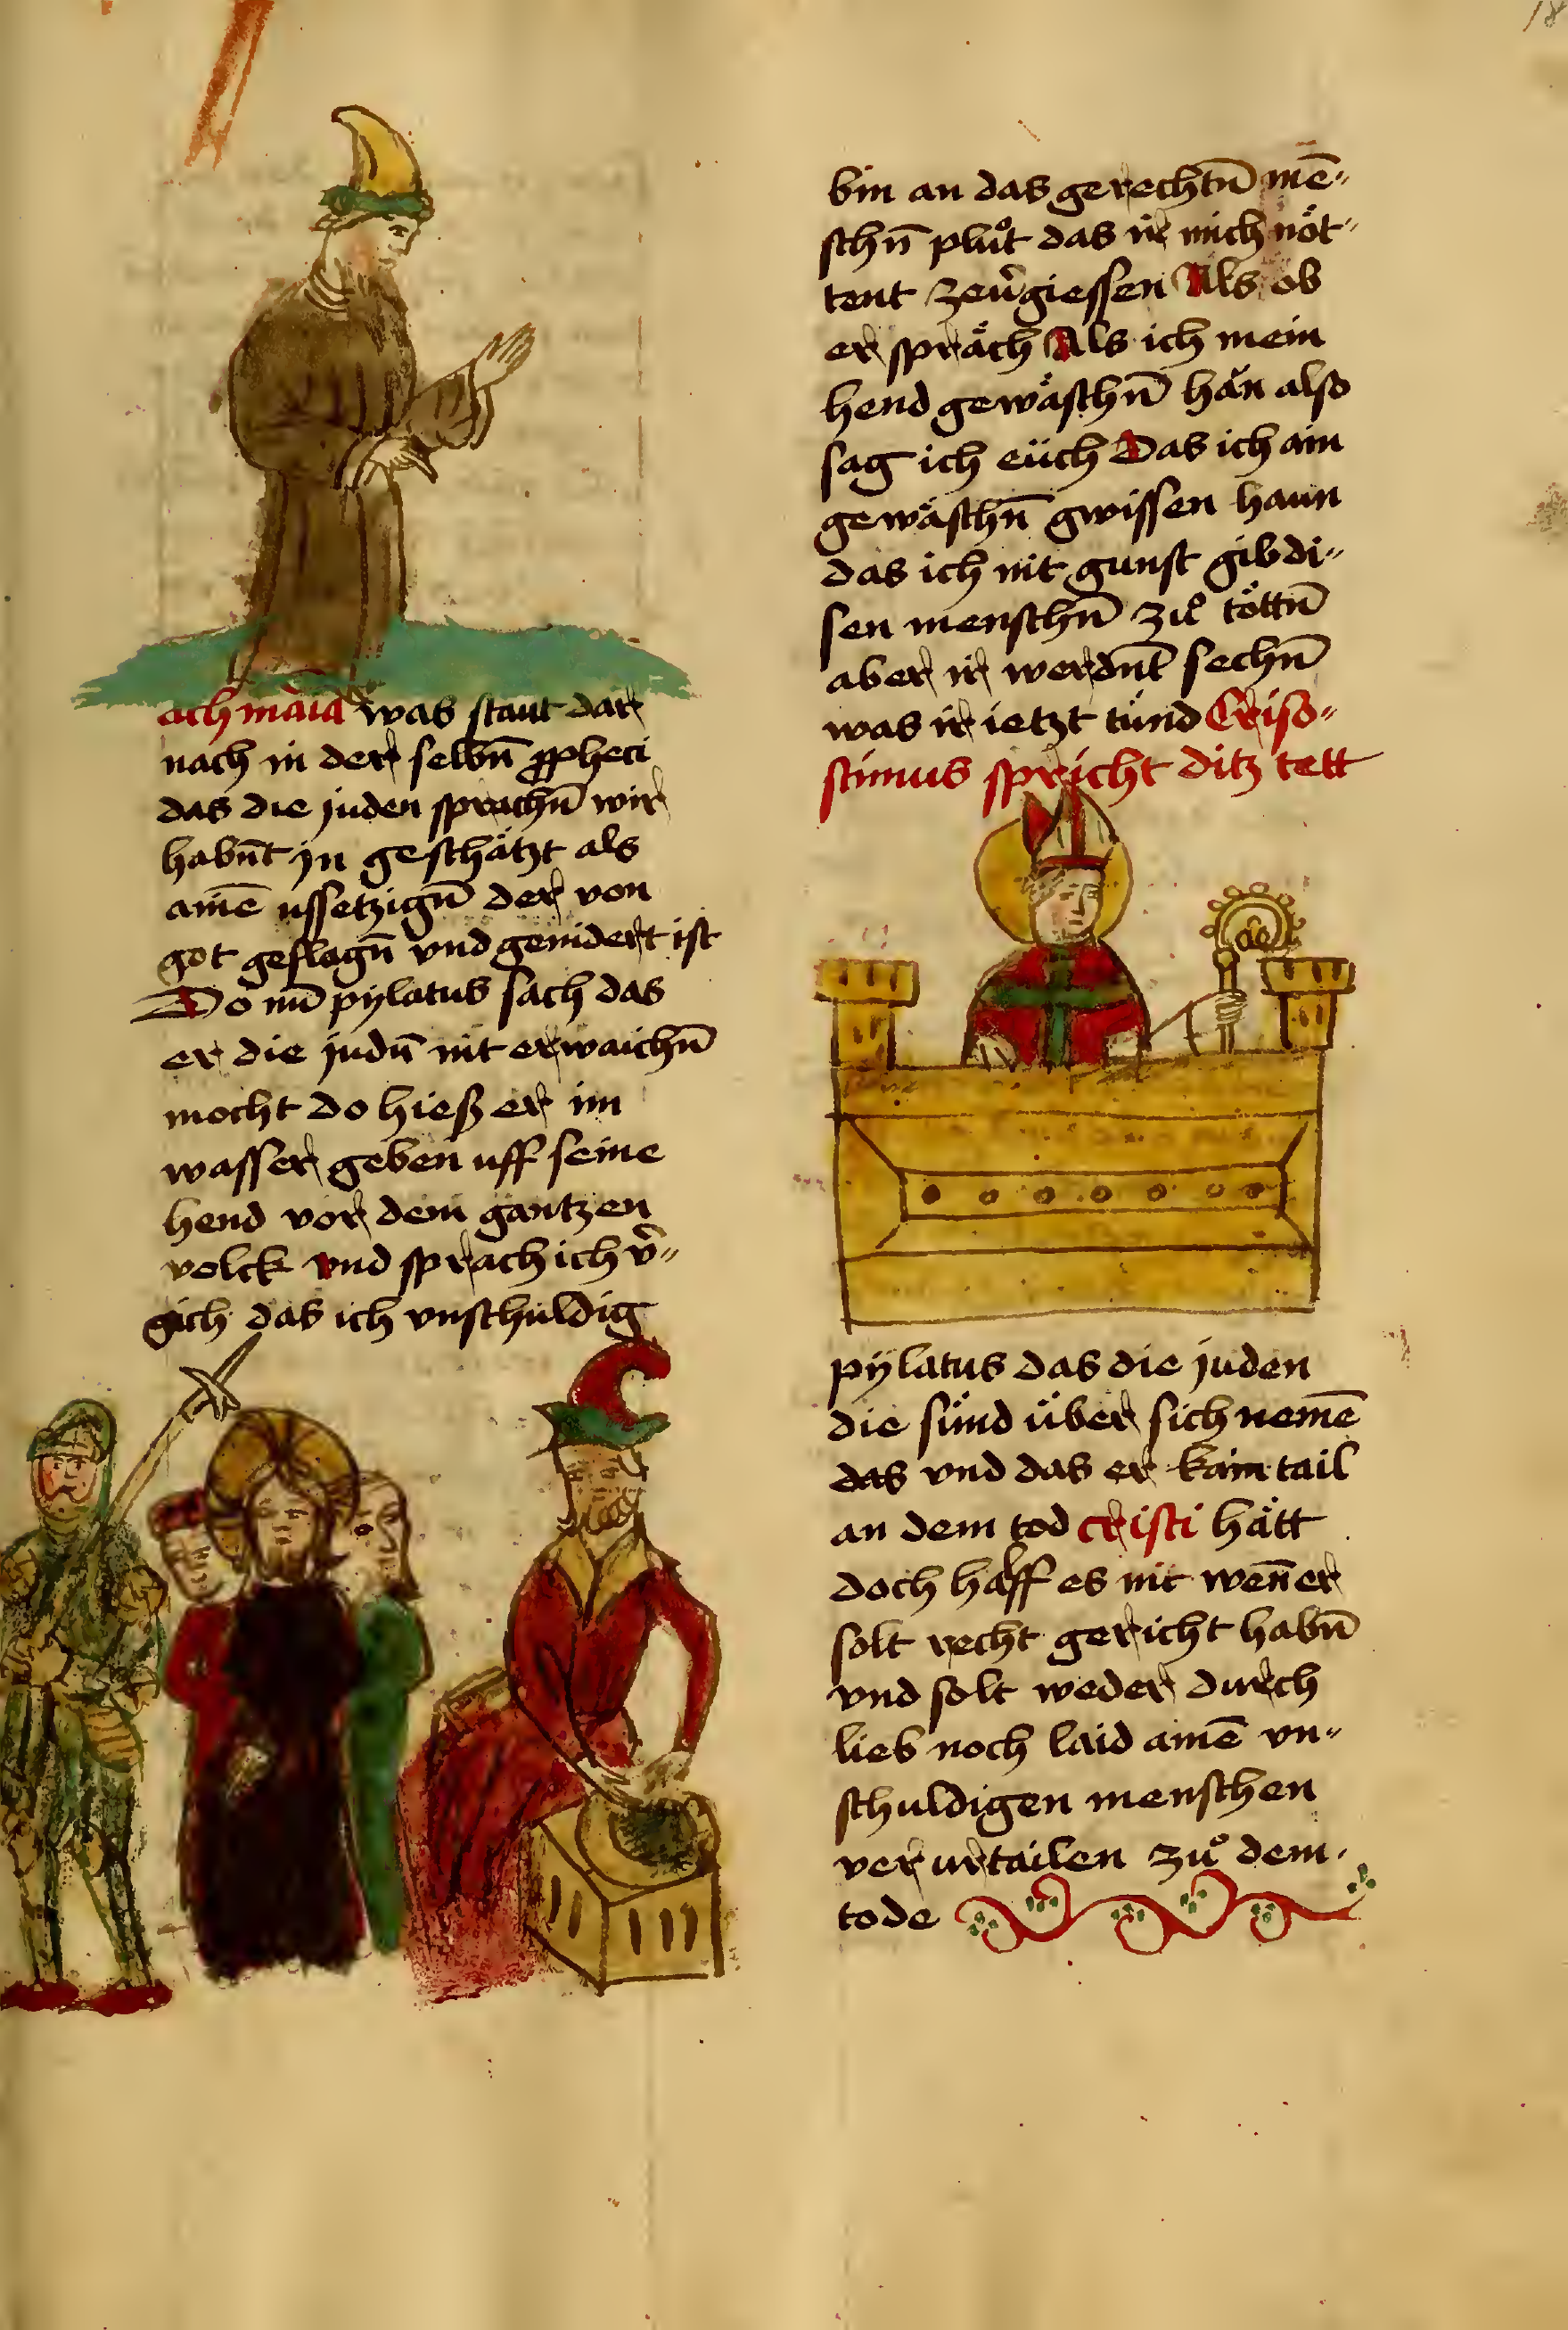 18
ach maria was staut dar
nach in der selbn̄ ꝓpheci
das die juden sprachn̄ wir
habn̄t jn geschätzt als
ainē ussetzign̄ der von
got geslagn̄ vnd genidert ist
Do nu̅ pÿlatus sach das
er die judn̄ nit erwaichn̄
mocht do hieß er im
wasser geben uff seine
hend vor dem gantzen
volck vnd sprach ich v̾〃
gich das ich vnschuldig
bin an das gerechtn̄ mē〃
schn̄ plůt das ir mich nöt〃
tent zeu̾giessen Als ob
er spräch Als ich mein
hend gewäschn̄ hän also
sag ich eüch Das ich ain
gewäschn̄ gwissen haun
das ich nit gunst gib di〃
sen menschn̄ zů töttn̄
aber ir werdn̄t sechn̄
was ir ietzt tünd Criso〃
stimus spricht ditz tett
pÿlatus das die juden
die sünd über sich nemē
das vnd das er kain tail
an dem tod cristi hätt
doch halff es nit wen̄ er
solt recht gericht habn̄
vnd solt weder durch
lieb noch laid ainē vn〃
schuldigen menschen
verurtailen zů dem
tode